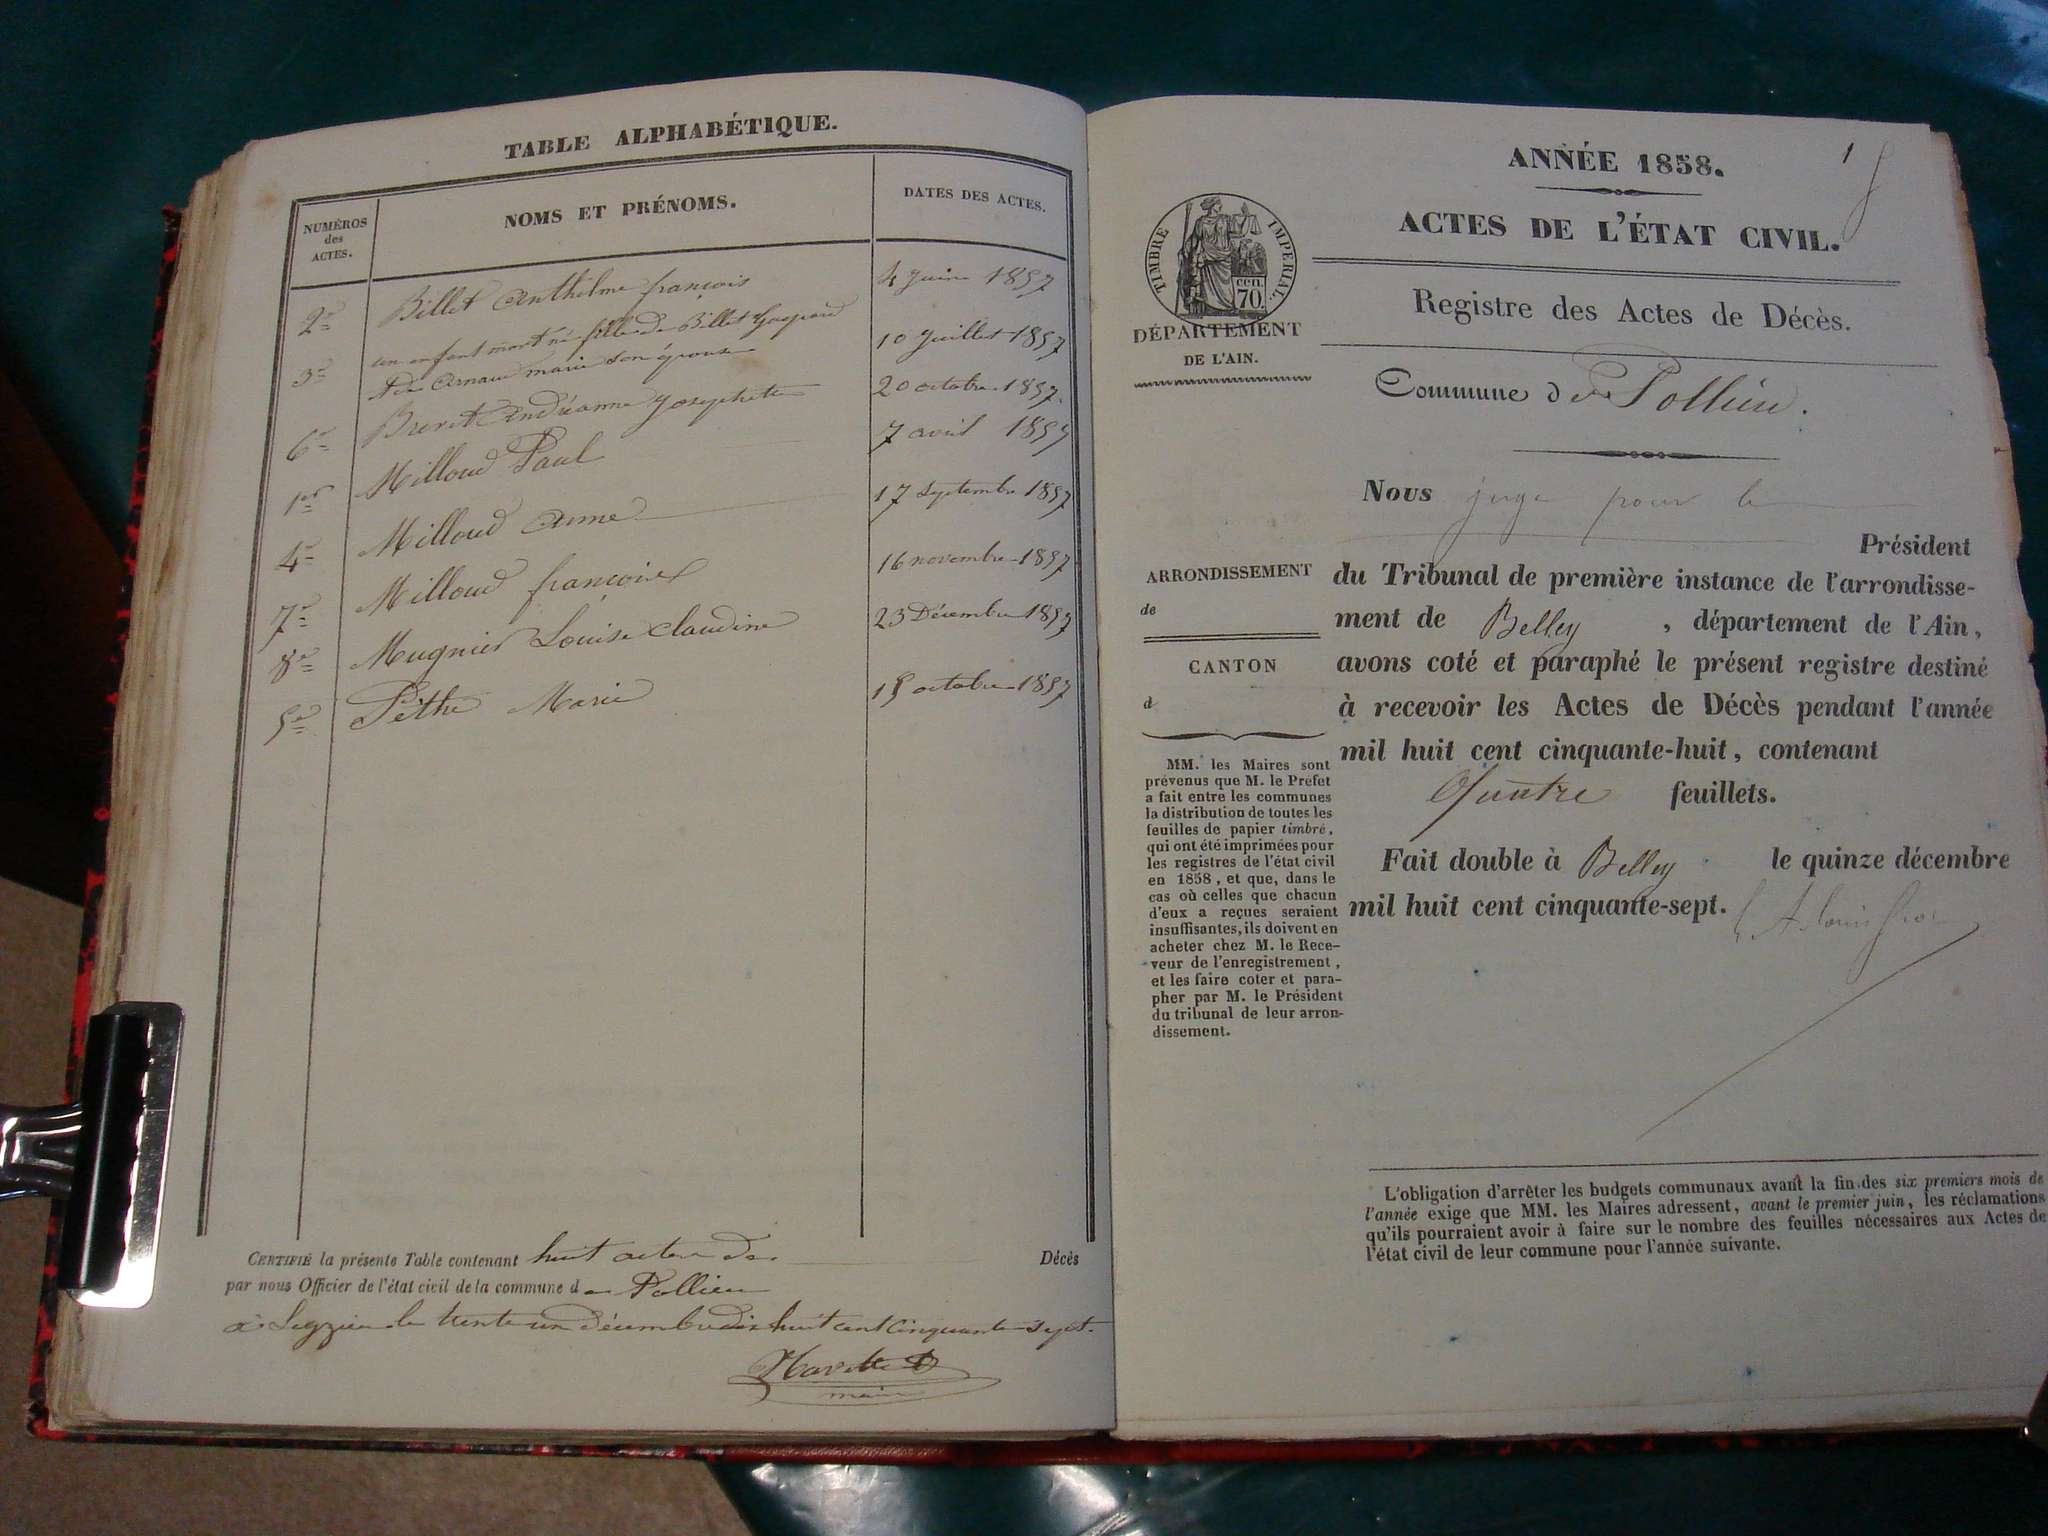 TABLE ALPHABÉTIQUE.
NUMÉROS des ACTES.
NOMS ET PRÉNOMS.
DATES DES ACTES.
2e Billet Anthelme françois 4 Juin 1857
3e un enfant mort né fille de Billet Gaspard 10 Juillet 1857
& de Arnaud marie son épouse
6e Brevet Andréanne Josephette 20 octobre 1857.
1er Milloud Paul 7 avril 1857
4e Milloud Anne 17 Septembre 1857
7e Milloud françoise 16 novembre 1857
8e Mugnier Louise Claudine 23 Décembre 1857
5e Péthe Marie 15 octobre 1857
CERTIFIÉ la présente Table contenant huit actes de Décès
par nous Officier de l'état civil de la commune de Pollieu
à le trente un décembre dix huit cent cinquante sept.
maire
1
ANNÉE 1858.
ACTES DE L'ÉTAT CIVIL.
TIMBRE IMPERIAL.
cen.
70.
DÉPARTEMENT
DE L'AIN.
Registre des Actes de Décès.
Commune de Pollieu.
Nous juge pour le
Président
du Tribunal de première instance de l'arrondisse-
ment de Belley, département de l'Ain,
avons coté et paraphé le présent registre destiné
à recevoir les Actes de Décès pendant l'année
mil huit cent cinquante-huit, contenant
Quatre feuillets.
Fait double à Belley le quinze décembre
mil huit cent cinquante-sept.
ARRONDISSEMENT
de
CANTON
d
MM. les Maires sont
prévenus que M. le Préfet
a fait entre les communes
la distribution de toutes les
feuilles de papier timbré,
qui ont été imprimées pour
les registres de l'état civil
en 1858, et que, dans le
cas où celles que chacun
d'eux a reçues seraient
insuffisantes, ils doivent en
acheter chez M. le Rece-
veur de l'enregistrement,
et les faire coter et para-
pher par M. le Président
du tribunal de leur arron-
dissement.
L'obligation d'arrêter les budgets communaux avant la fin des six premiers mois de
l'année exige que MM. les Maires adressent, avant le premier juin, les réclamations
qu'ils pourraient avoir à faire sur le nombre des feuilles nécessaires aux Actes de
l'état civil de leur commune pour l'année suivante.